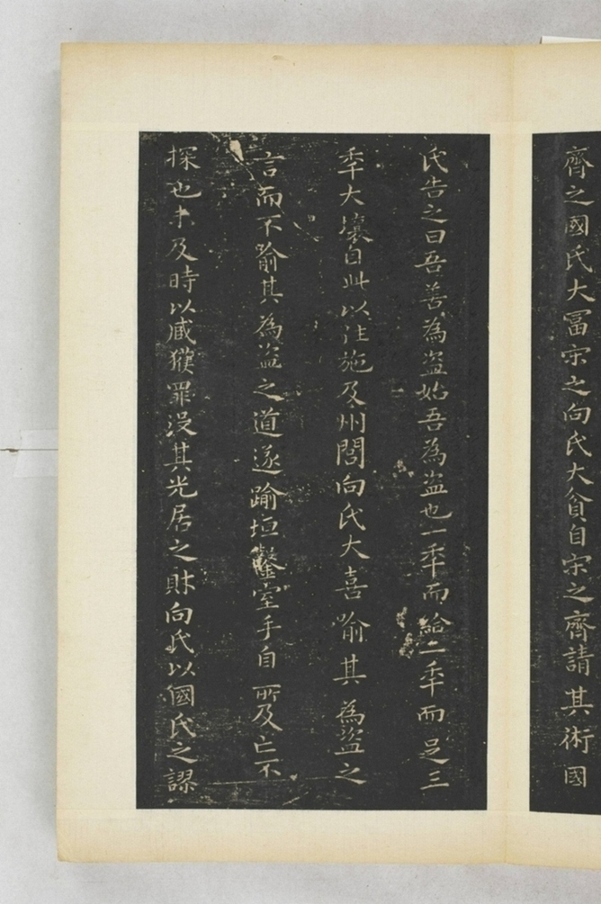 齊之國氏大冨宋之向氏大貧自宋之齊請其術國
氏告之曰吾善為盗始吾為盗也一秊而給二秊而足三
秊大壤自此以往施及州閭向氏大喜喻其為盗之
言而不喻其為盗之道遂踰垣鑿室手目所及亡不
探也未及時以臧獲罪没其先居之財向氏以國氏之謬